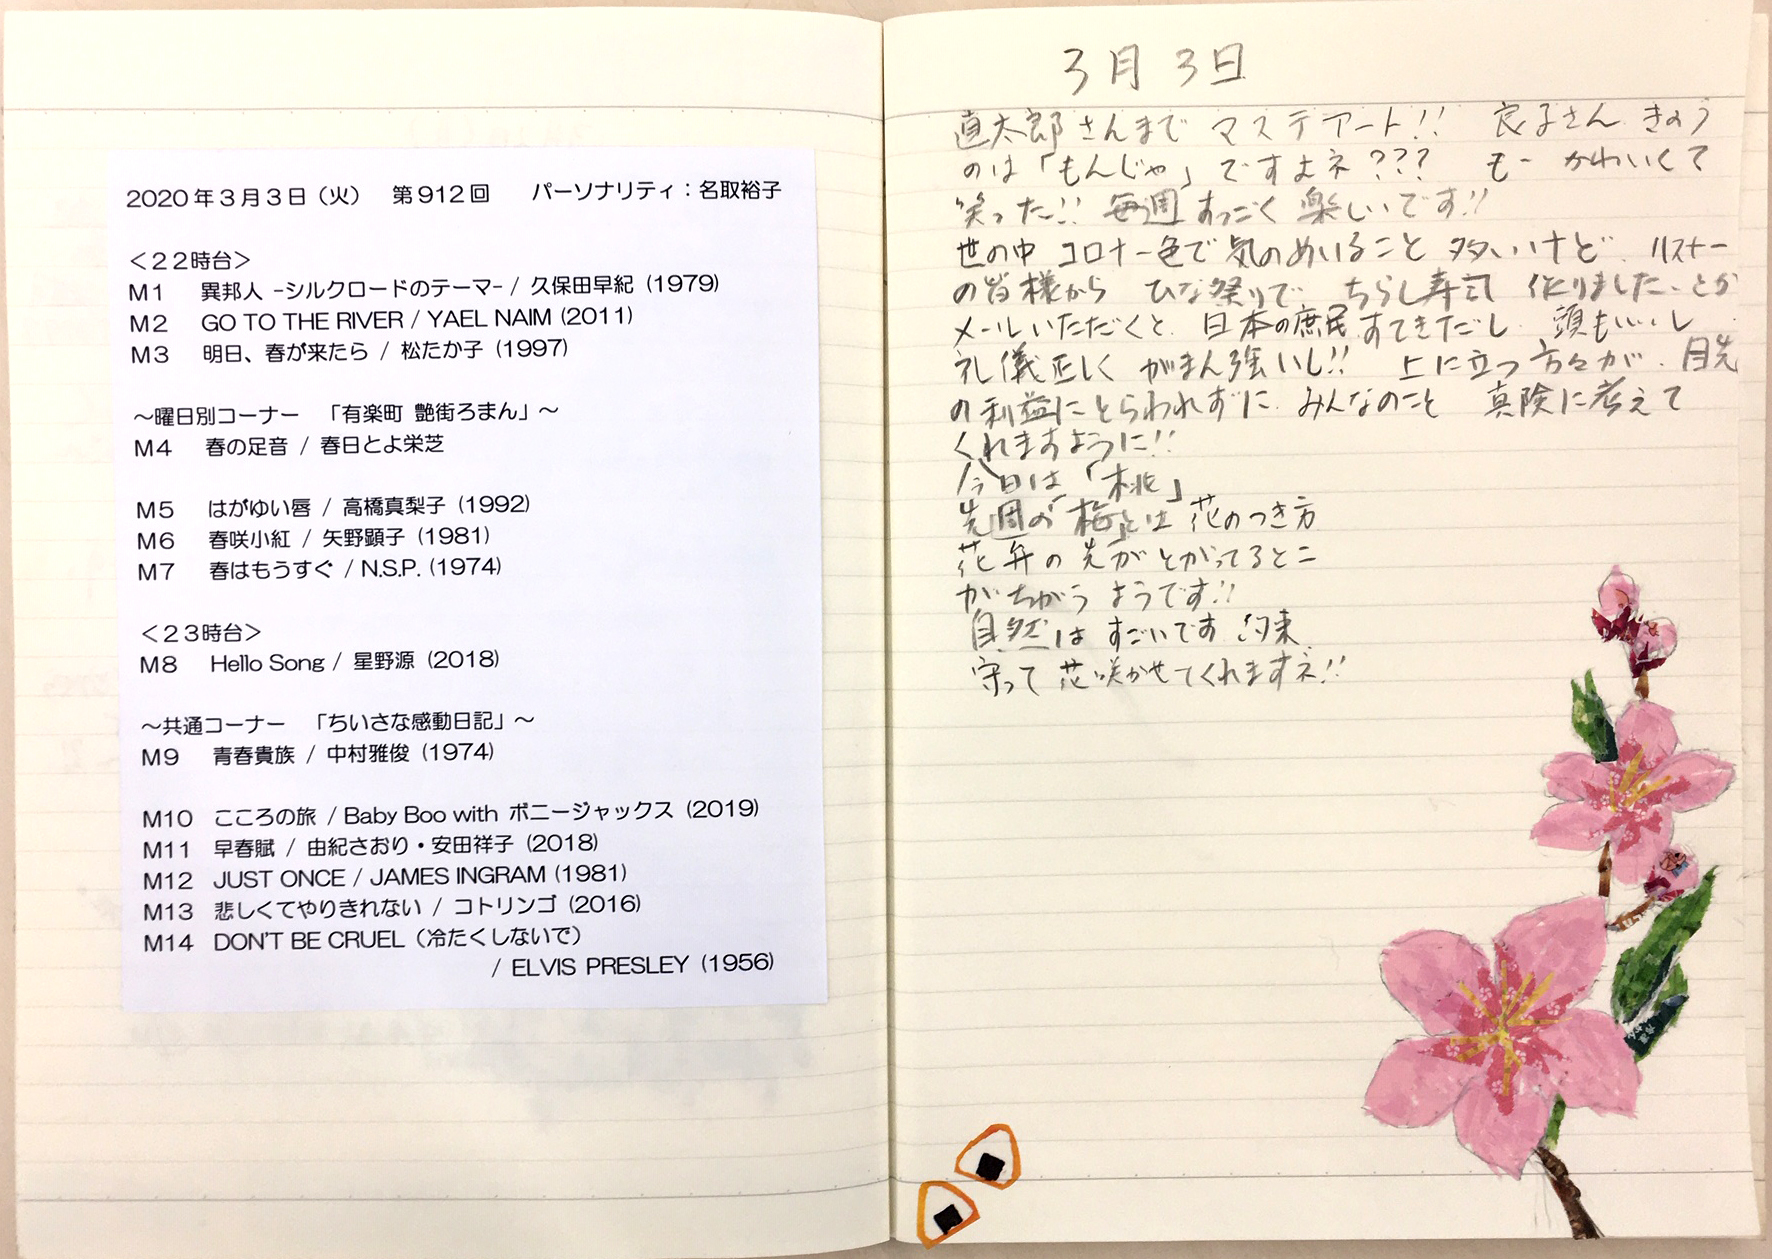 2020年3月3日（火）　第912回　　パーソナリティ：名取裕子
＜22時台＞
M1　異邦人 -シルクロードのテーマ- / 久保田早紀 (1979)
M2　GO TO THE RIVER / YAEL NAIM (2011)
M3　明日、春が来たら / 松たか子 (1997)
～曜日別コーナー　「有楽町 艶街ろまん」～
M4　春の足音 / 春日とよ栄芝
M5　はがゆい唇 / 高橋真梨子 (1992)
M6　春咲小紅 / 矢野顕子 (1981)
M7　春はもうすぐ / N.S.P. (1974)
＜23時台＞
M8　Hello Song / 星野源 (2018)
～共通コーナー　「ちいさな感動日記」～
M9　青春貴族 / 中村雅俊 (1974)
M10　こころの旅 / Baby Boo with ボニージャックス (2019)
M11　早春賦 / 由紀さおり・安田祥子 (2018)
M12　JUST ONCE / JAMES INGRAM (1981)
M13　悲しくてやりきれない / コトリンゴ (2016)
M14　DON'T BE CRUEL（冷たくしないで）
/ ELVIS PRESLEY (1956)
3月3日
直太郎さんまで マステアート!!　良子さん きのう
のは「もんじゃ」ですよネ???　もー かわいくて
笑った!! 毎週 すっごく 楽しいです!!
世の中 コロナ一色で 気のめいること 多いけど、リスナー
の皆様から ひな祭りで ちらし寿司 作りました、とか
メールいただくと、日本の庶民 すてきだし 頭もいいし
礼儀正しく がまん強いし!!　上に立つ方々が、目先
の利益にとらわれずに、みんなのこと 真険に考えて
くれますように!!
今日は「桃」
先週の「梅」とは 花のつき方
花弁の先がとがってるとこ
がちがうようです!!
自然は すごいです 約束
守って 花咲かせてくれますネ!!